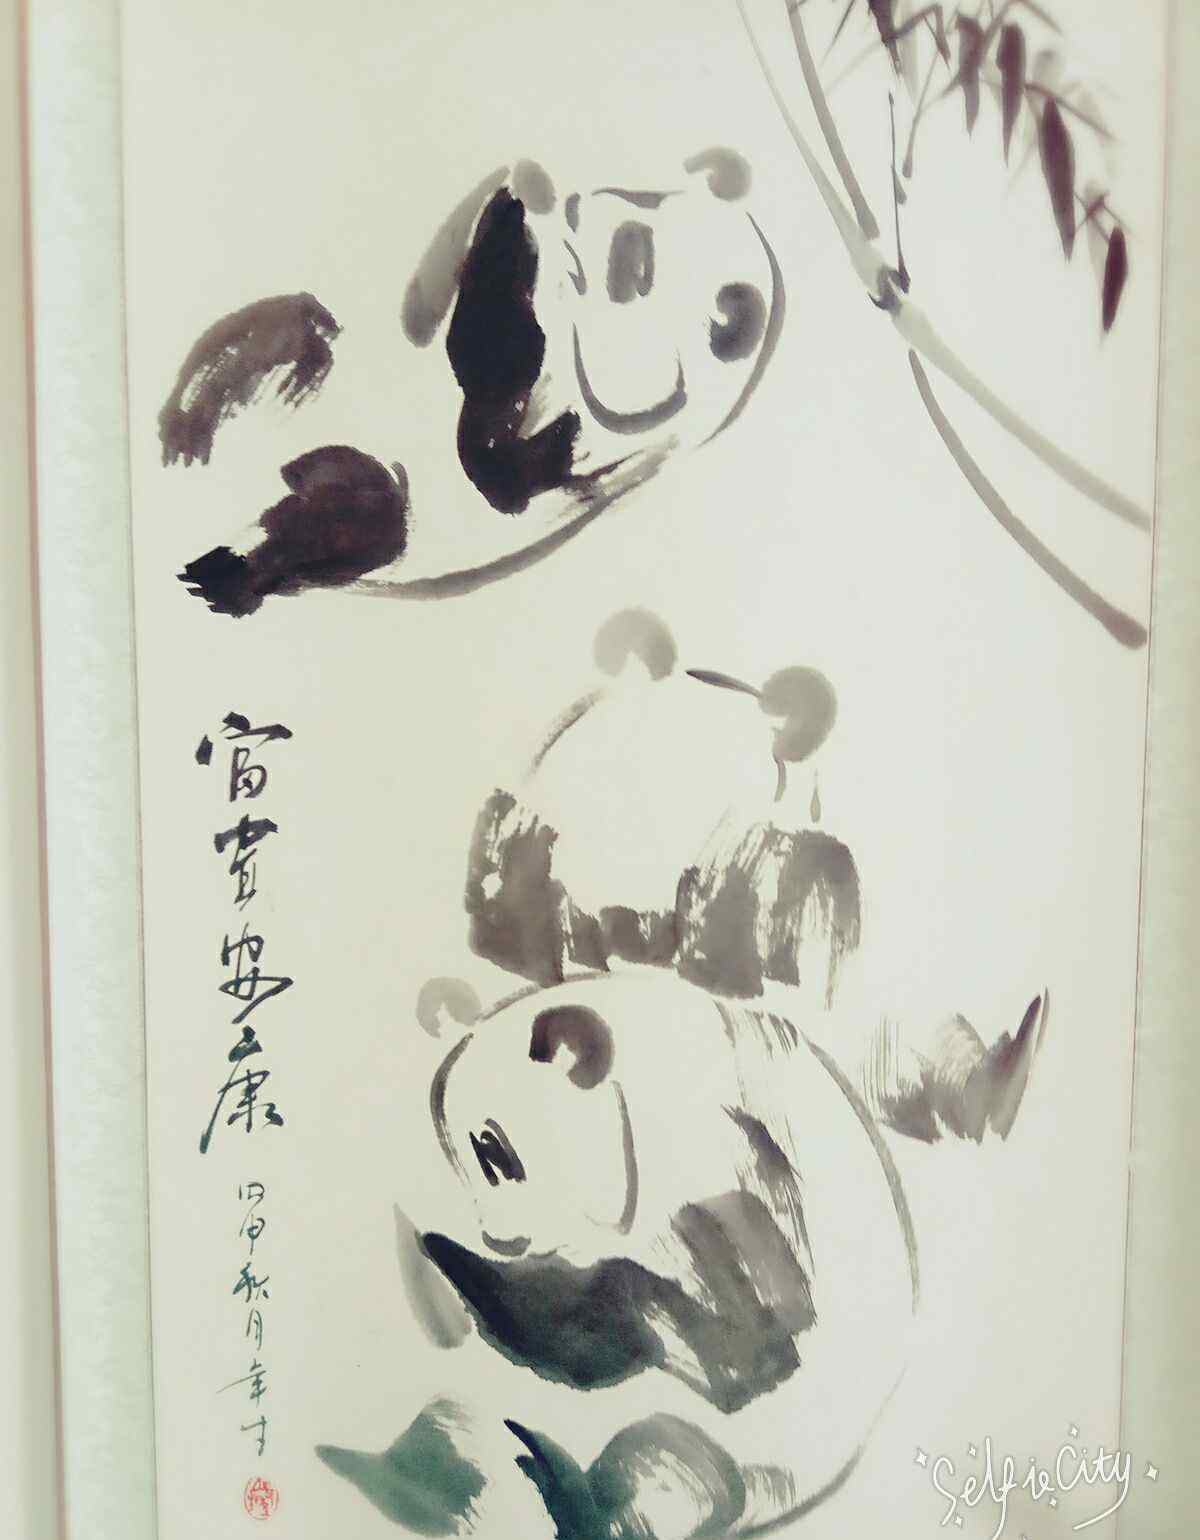 富貴安康
甲申秋月年生
SelfieCity